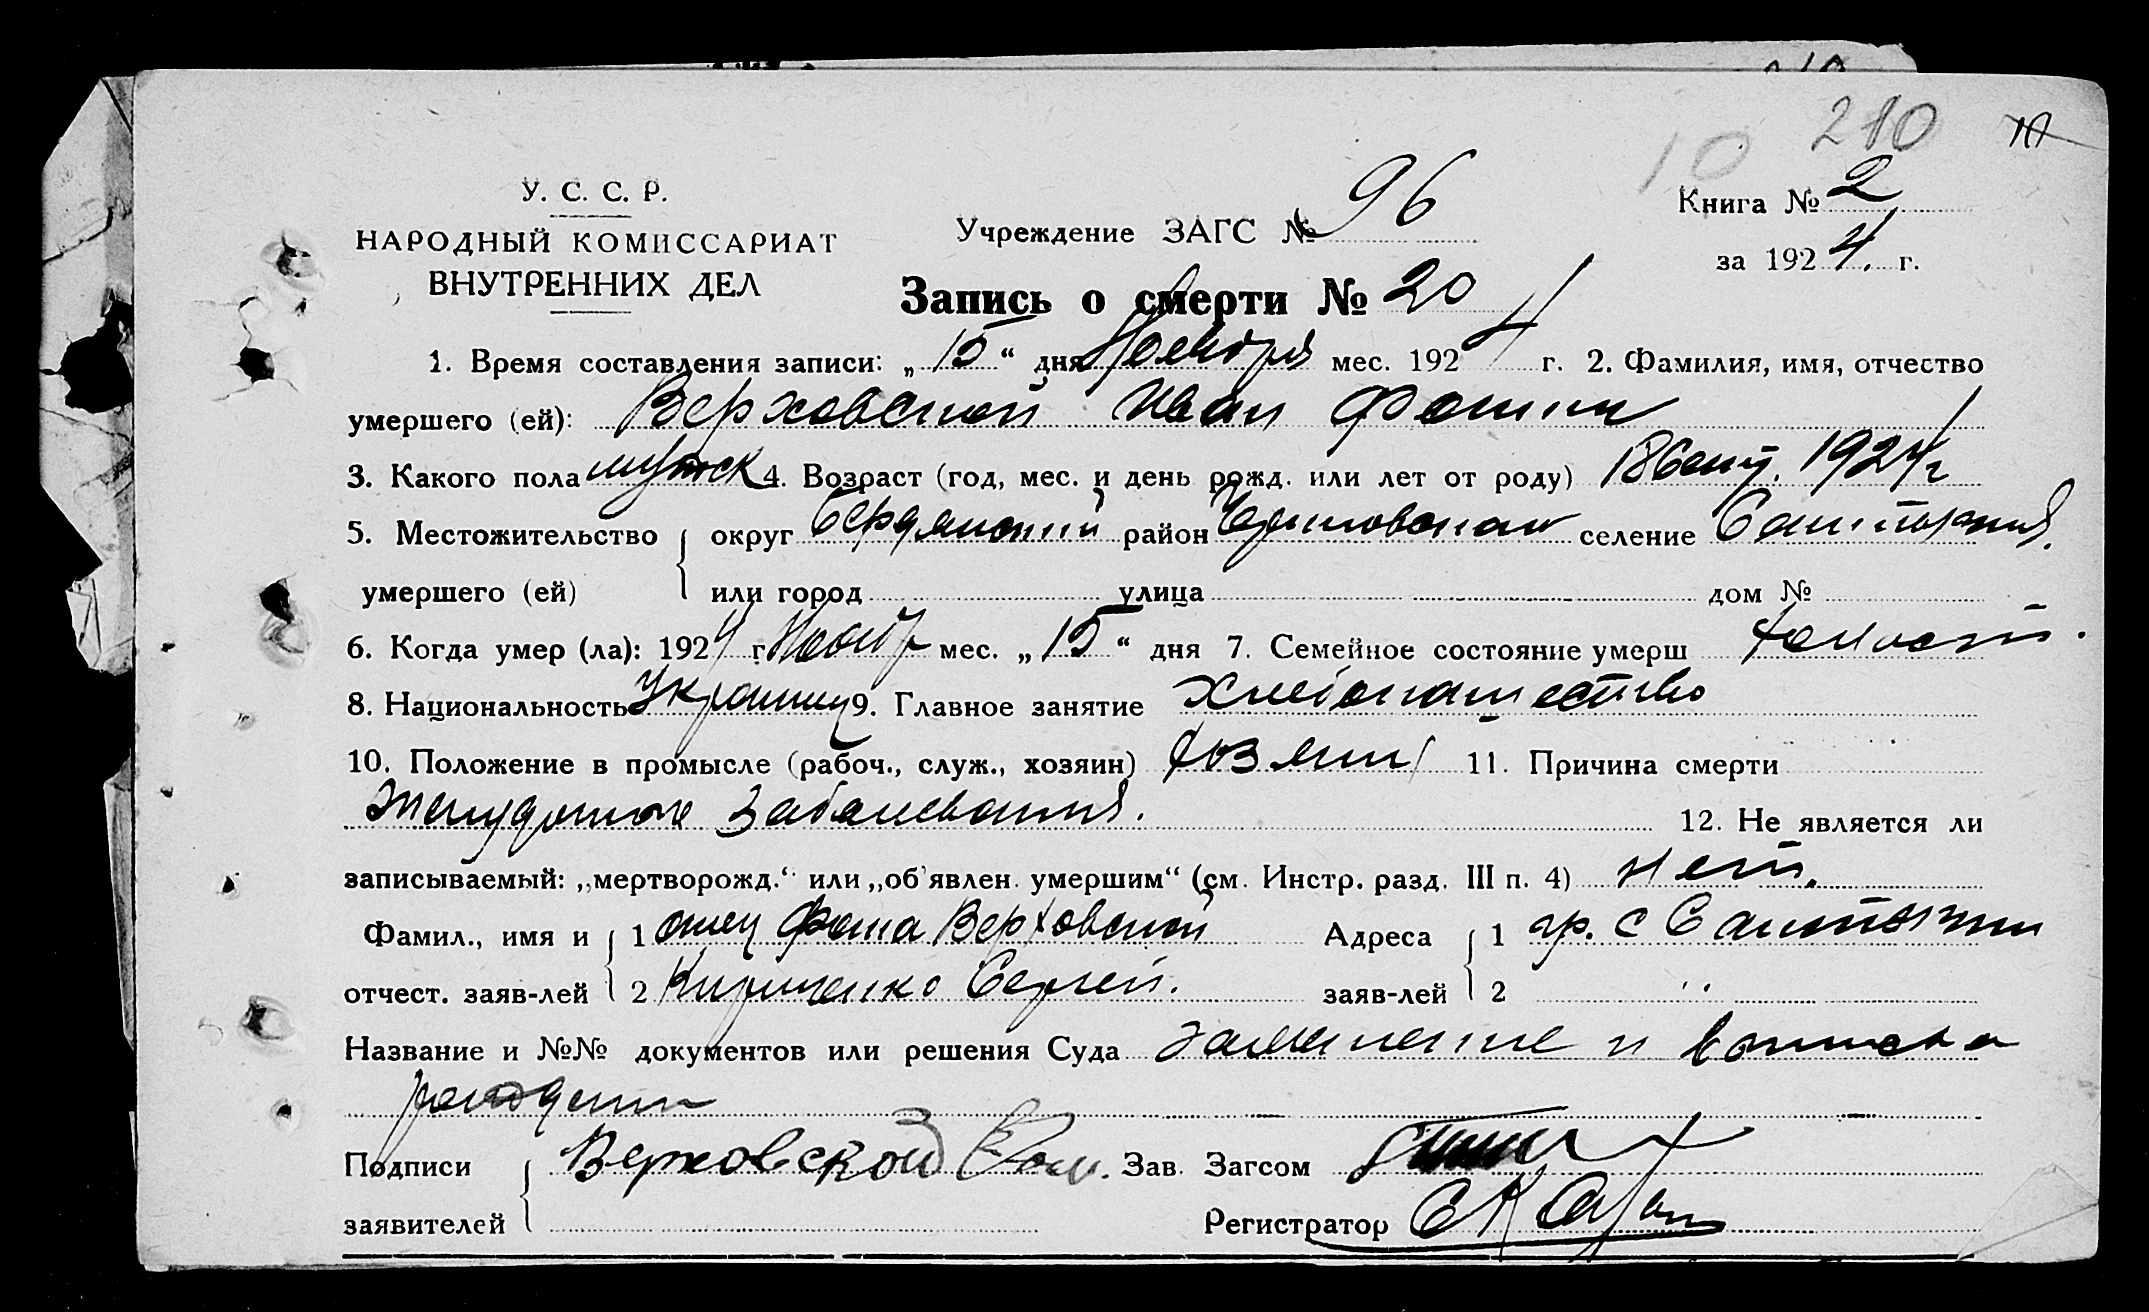 210
10
У. С. С. Р.
НАРОДНЫЙ КОМИССАРИАТ
ВНУТРЕННИХ ДЕЛ
Учреждение ЗАГС № 96
Книга № 2
за 1924 г.
Запись о смерти № 20
1. Время составления записи: „15“ дня Ноября мес. 1924 г. 2. Фамилия, имя, отчество
умершего (ей): Верховской Иван Фомич
3. Какого пола мужск 4. Возраст (год, мес. и день рожд. или лет от роду) 1924 г
5. Местожительство округ Бердянский район селение
умершего (ей) или город улица дом №
6. Когда умер (ла): 1924 г. Нояб мес. „15“ дня 7. Семейное состояние умерш холост.
8. Национальность Украинец 9. Главное занятие хлебопашество
10. Положение в промысле (рабоч., служ., хозяин) 11. Причина смерти
Желудочное заболевания.
12. Не является ли
записываемый: „мертворожд.“ или „об'явлен. умершим“ (см. Инстр. разд. III п. 4) нет.
Фамил., имя и 1 отец Фома Верховской Адреса 1 гр. с
отчест. заяв-лей 2 Кириченко Сергей. заяв-лей 2 "
Название и №№ документов или решения Суда заявление и
Подписи Верховской Зав. Загсом
заявителей Регистратор